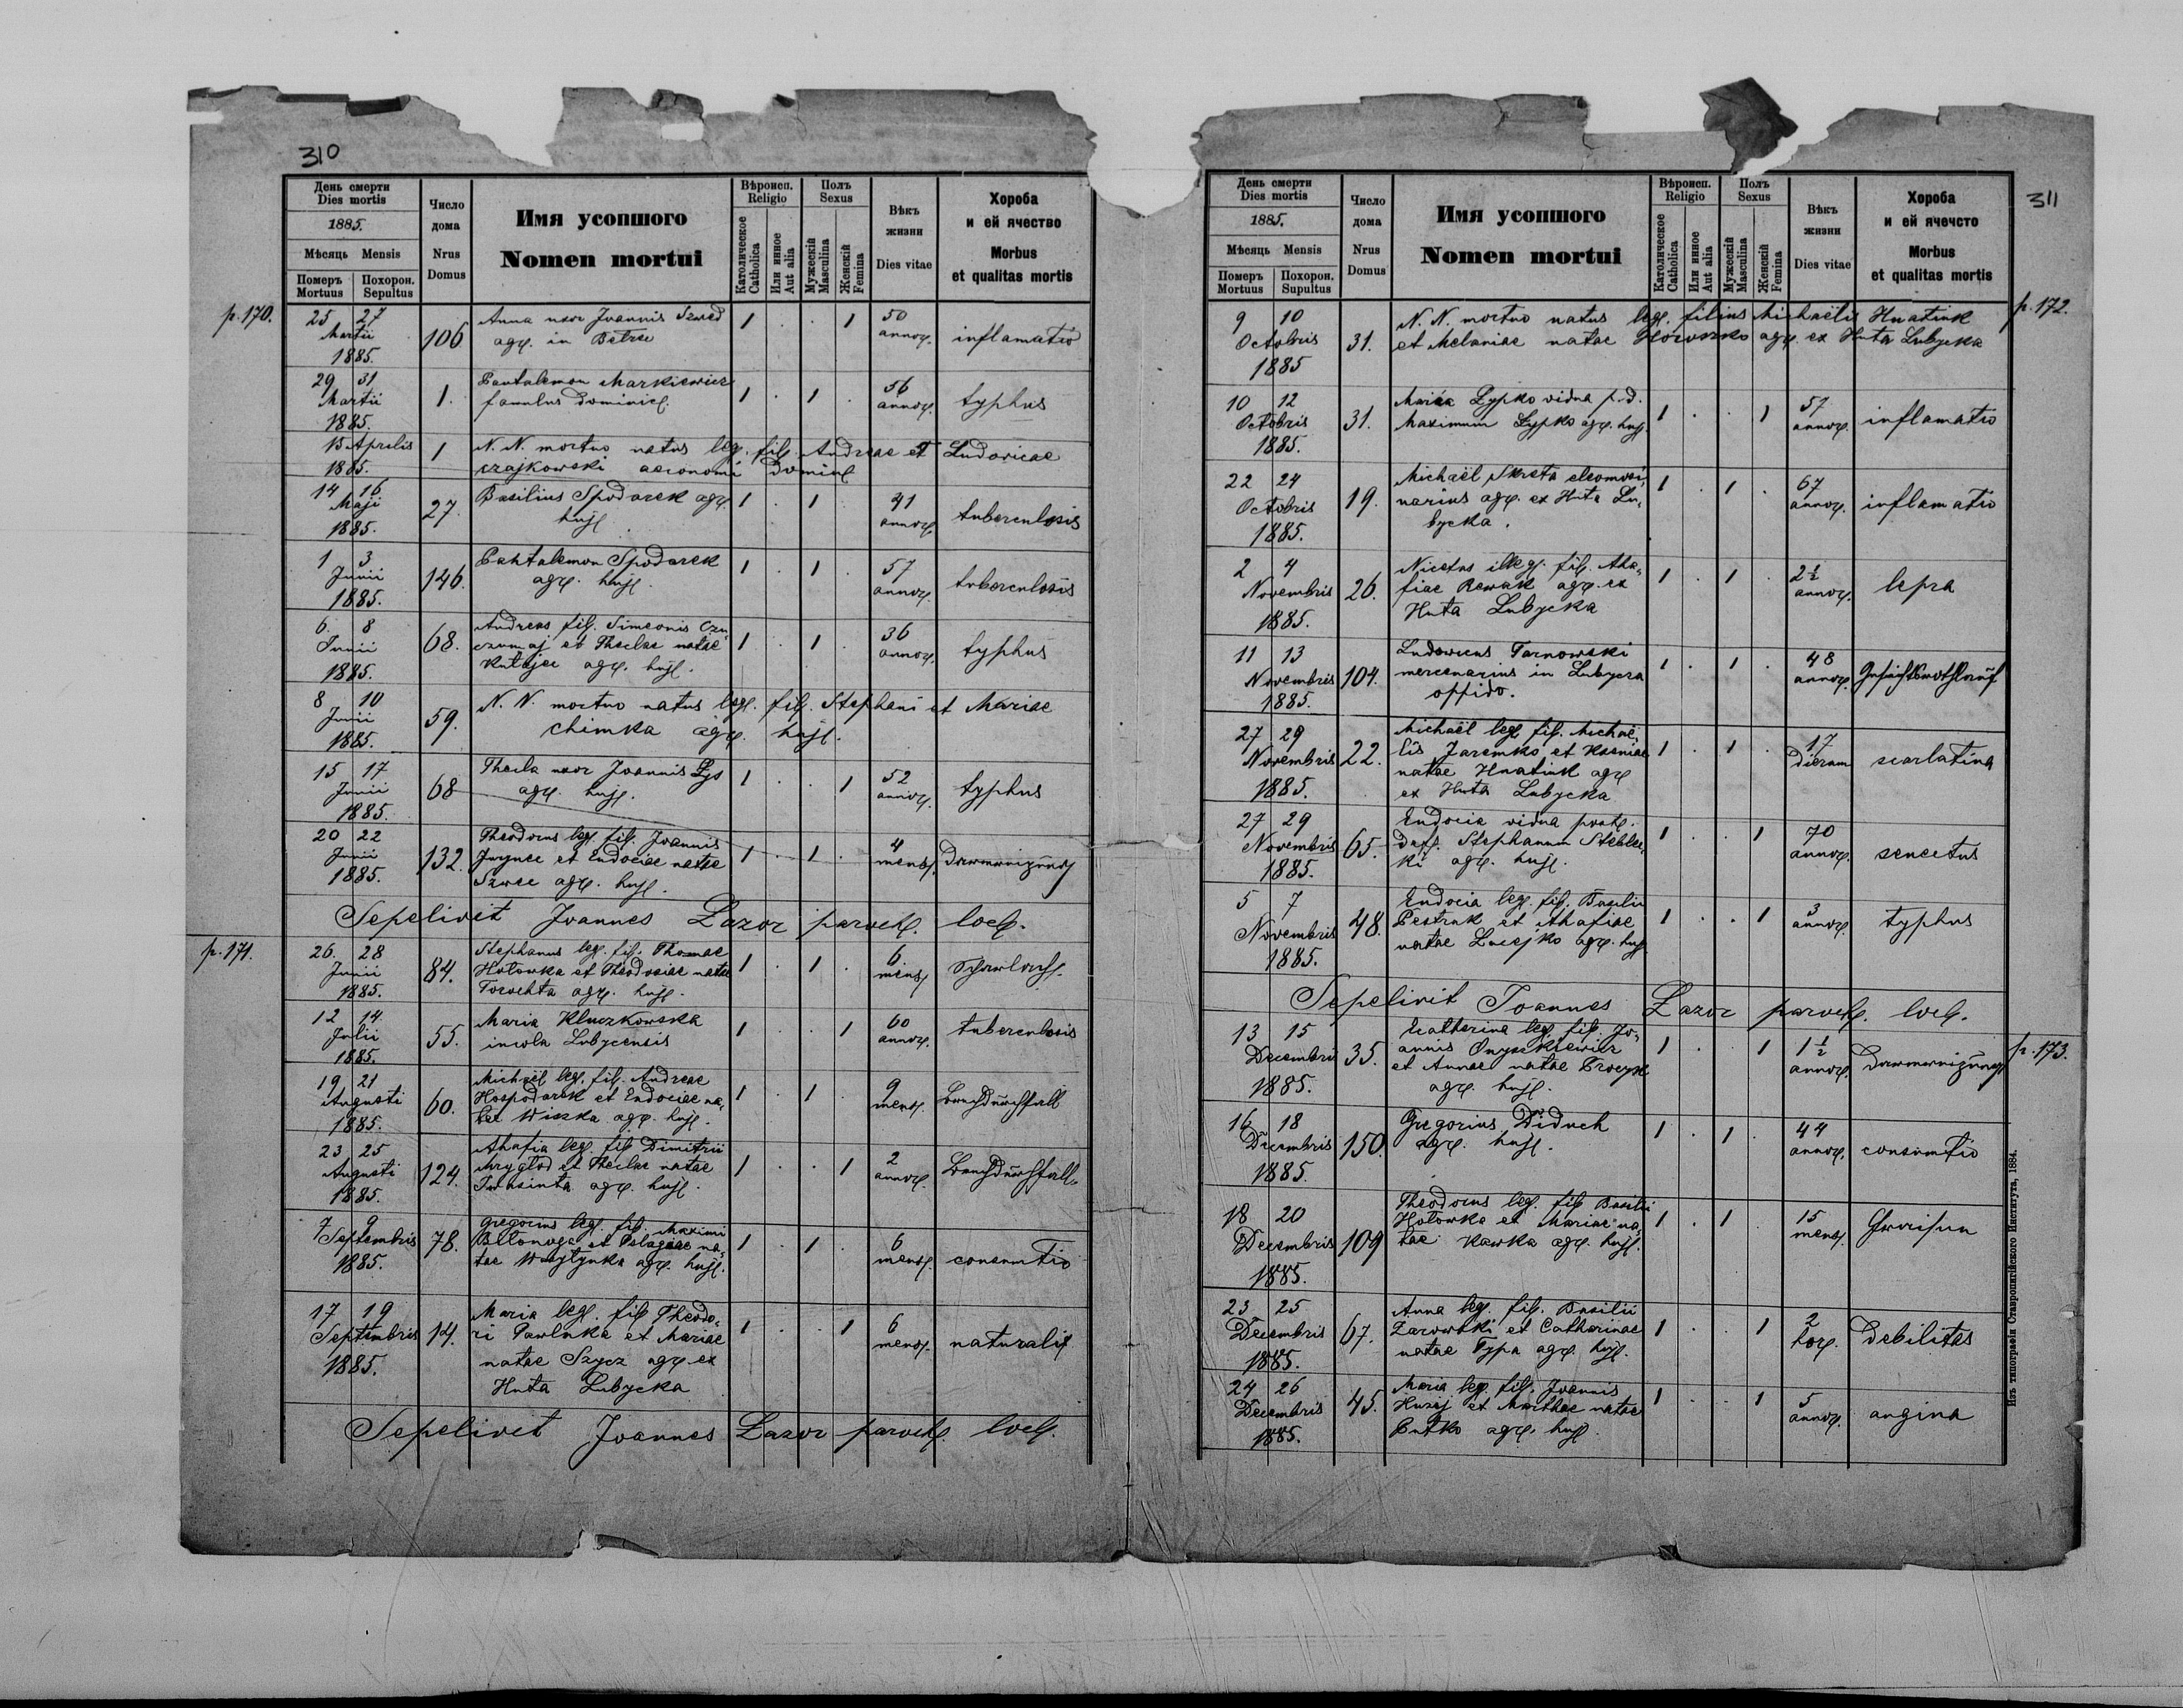 310
День смерти
Dies mortis
1885.
Мѣсяць Mensis
Померъ Похорон.
Mortuus Sepultus
Число
дома
Nrus
Domus
Имя усопшого
Nomen mortui
Вѣроисп.
Religio
Католическое
Catholica
Или инное
Aut alia
Полъ
Sexus
Мужескій
Masculina
Женскій
Femina
Вѣкъ
жизни
Dies vitae
Хороба
и ей ячество
Morbus
et qualitas mortis
p. 170.
25 27 Anna uxor Joannis Szwed 1 . . 1 50
Martii 106 agr. in Betrze annor. inflamatio
1885.
29 31 Pantalemon Markiewicz 56
Martii 1. famulus dominic. 1 . 1 . annor. typhus
1885.
15 Aprilis 1 N. N. mortuo natus leg. fil. Andreae et Ludovicae
1885. Czajkowski aeconomi
14 16 Basilius Spodarek agr. 1 . 1 . 41
Maji 27. huj. annor. tuberculosis
1885.
1 3 Pantalemon Spodarek 1 . 1 . 57
Junii 146. agr. huj. annor. tuberculosis
1885.
6. 8 Andreas fil. Simeonis
Junii 68. et Theclae natae 1 . 1 . 36 annor. typhus
1885. agr. huj.
8 10 N. N. mortuo natus leg. fil. Stephani et Mariae
Junii 59. Chimka agr. huj.
1885.
15 17 Thecla uxor Joannis Lys 1 . . 1 52
Junii 68 agr. huj. annor. typhus
1885.
20 22 Theodorus leg. fil. Joannis 4
Junii 132. et Eudociae natae 1 . 1 . mens.
1885. Szwec agr. huj.
Sepelivit Joannes Lazor paroch. loc.
p. 171.
26. 28 Stephanus leg. fil. Thomae 6
Junii 84. Hotowka et Theodosiae natae 1 . 1 . mens.
1885. Torochta agr. huj.
12 14 Maria Kluczkowska 1 . . 1 60
Julii 55. incola Lubycensis annor. tuberculosis
1885.
19 21 Michael leg. fil. Andreae 9
Augusti 60. Hospodarek et Eudociae na- 1 . 1 . mens.
1885. tae Wiszka agr. huj.
23 25 Ahafia leg. fil. Dimitrii 2
Augusti 124. Mryglod et Theclae natae 1 . . 1 annor.
1885. agr. huj.
7 9 Gregorius leg. fil. Maximi 6
Septembris 78. et Pelagiae na- 1 . 1 . mens. consumtio
1885. tae agr. huj.
17 19 Maria leg. fil. Theodo- 6
Septembris 14. ri Pawluka et Mariae 1 . . 1 mens. naturalis
1885. natae Szycz agr. ex
Huta Lubycka
Sepelivit Joannes Lazor paroch. loc.
311
День смерти
Dies mortis
1885.
Мѣсяць Mensis
Померъ Похорон.
Mortuus Supultus
Число
дома
Nrus
Domus
Имя усопшого
Nomen mortui
Вѣроисп.
Religio
Католическое
Catholica
Или инное
Aut alia
Полъ
Sexus
Мужескій
Masculina
Женскій
Femina
Вѣкъ
жизни
Dies vitae
Хороба
и ей ячечсто
Morbus
et qualitas mortis
p. 172.
9 10 N. N. mortuo natus leg. filius Michaëlis Hnatiuk
Octobris 31. et Melaniae natae agr. ex Huta Lubycka
1885
10 12 Maria Lypko vidua p. d. 57
Octobris 31. Maximum Lypko agr. huj. 1 . . 1 annor. inflamatio
1885.
22 24 Michaël Skreta eleomosi- 67
Octobris 19. narius agr. ex Huta Lu- 1 . 1 . annor. inflamatio
1885. bycka.
2 4 Nicetus illeg. fil. Aha- 2½
Novembris 26. fiae Rewak agr. ex 1 . 1 . annor. lepra
1885. Huta Lubycka
11 13 Ludowicus Tarnowski 48
Novembris 104. mercenarius in Lubycza 1 . 1 . annor.
1885. oppido.
27 29 Michaël leg. fil. Michaë-
Novembris 22. lis Jaremko et Kseniae 1 . 1 . 17 dierum scarlatina
1885. natae Hnatiuk agr.
ex Huta Lubycka
27 29 Eudocia vidua post.
Novembris 65. def. Stephanum 1 . . 1 70 annor. senectus
1885. agr. huj.
5 7 Eudocia leg. fil. Basilii 3
Novembris 48. Pestrak et Ahafiae 1 . . 1 annor. typhus
1885. natae agr. huj.
Sepelivit Joannes Lazor paroch. loc.
p. 173.
13 15 Catherina leg. fil. Jo- 1½
Decembri 35. annis Onyszkiewicz 1 . . 1 annor.
1885. et Annae natae
agr. huj.
16 18 Gregorius Diduch 44
Decembris 150. agr. huj. 1 . 1 . annor. consumtio
1885.
18 20 Theodorus leg. fil. Basilii 15
Decembris 109 Hotowka et Mariae na- 1 . 1 . mens.
1885. tae Kawka agr. huj.
23 25 Anna leg. fil. Basilii 2
Decembris 67. Zarowski et Catharinae 1 . . 1 hor. Debilitas
1885. natae Typa agr. huj.
24 26 Maria leg. fil. Joannis 5
Decembris 45. Huzej et Marthae natae 1 . . 1 annor. angina
1885. Putko agr. huj.
Изъ типографіи Ставропигійского Института, 1884.